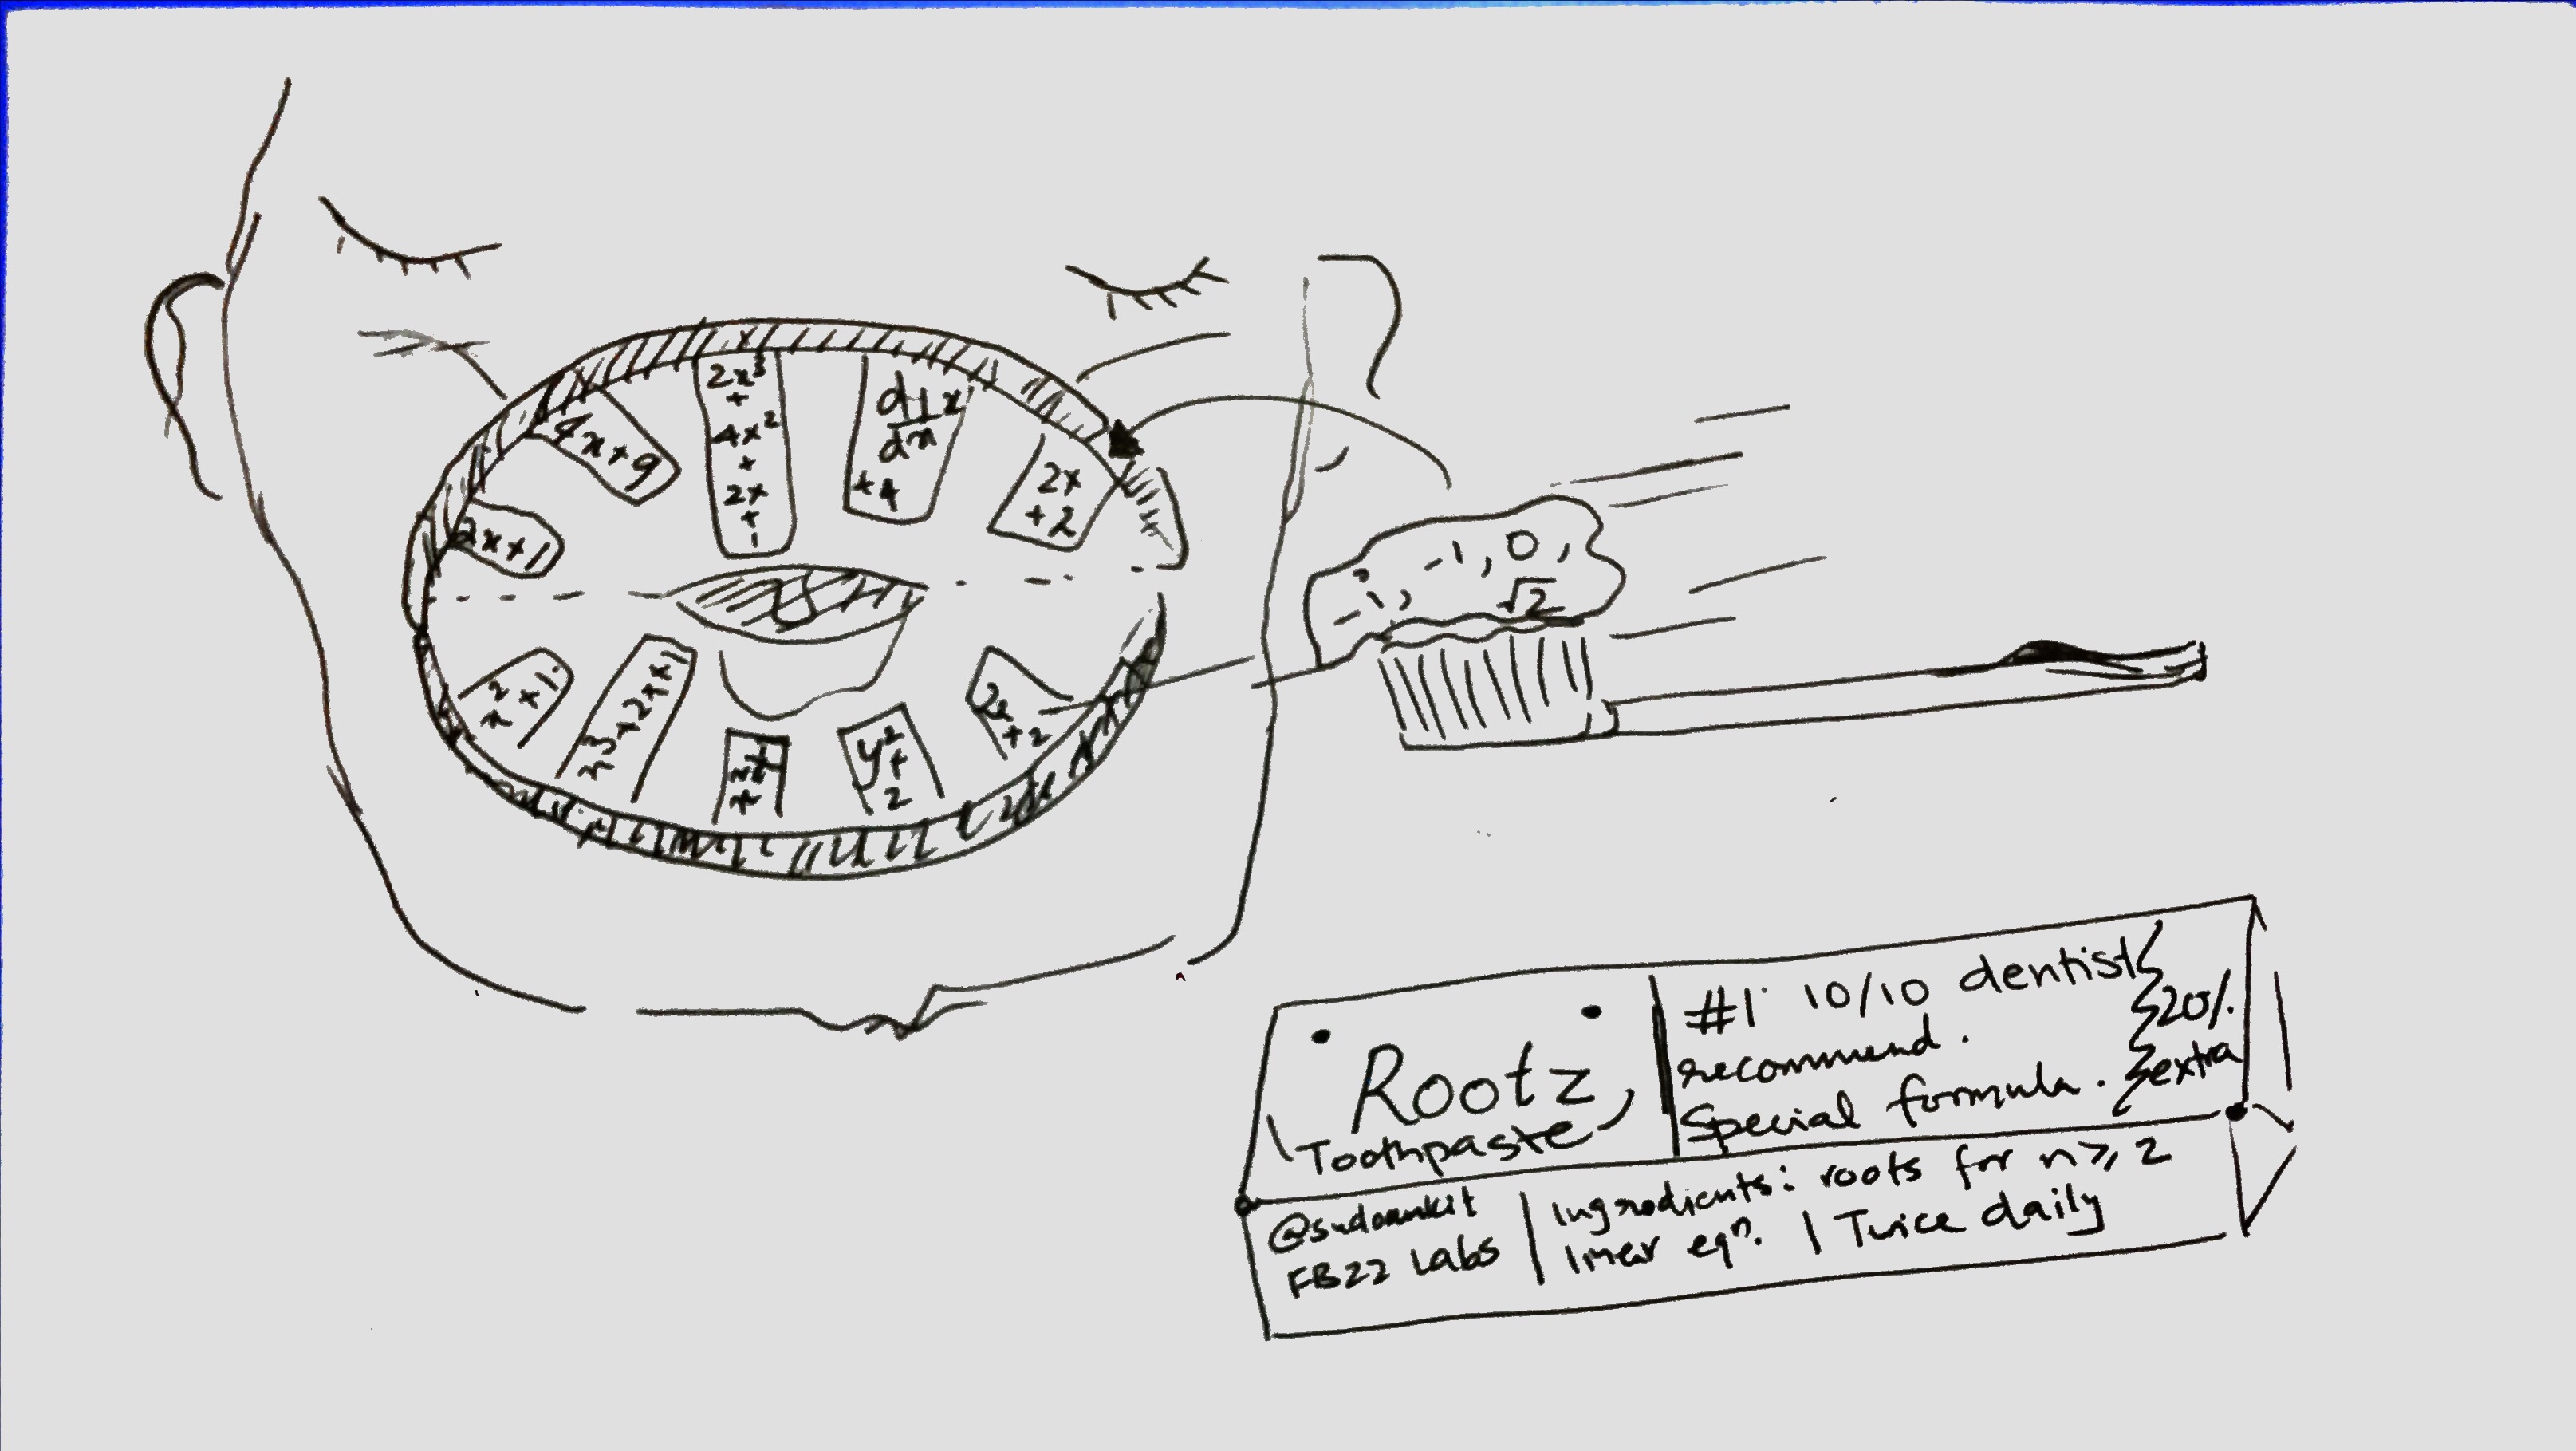 2x³
+
4x²
+
2x
+
1
4x+9
2x+1
2x
+2
x²+1
x³+2x+1
y²+
2
2x
+2
i, -1, 0,
-1, √2
Rootz
Toothpaste
#1 10/10 dentist
recommend.
Special formula.
20%
extra
@sudoankit
FB22 Labs
Ingredients: roots for n ≥ 2
linear eqⁿ. | Twice daily